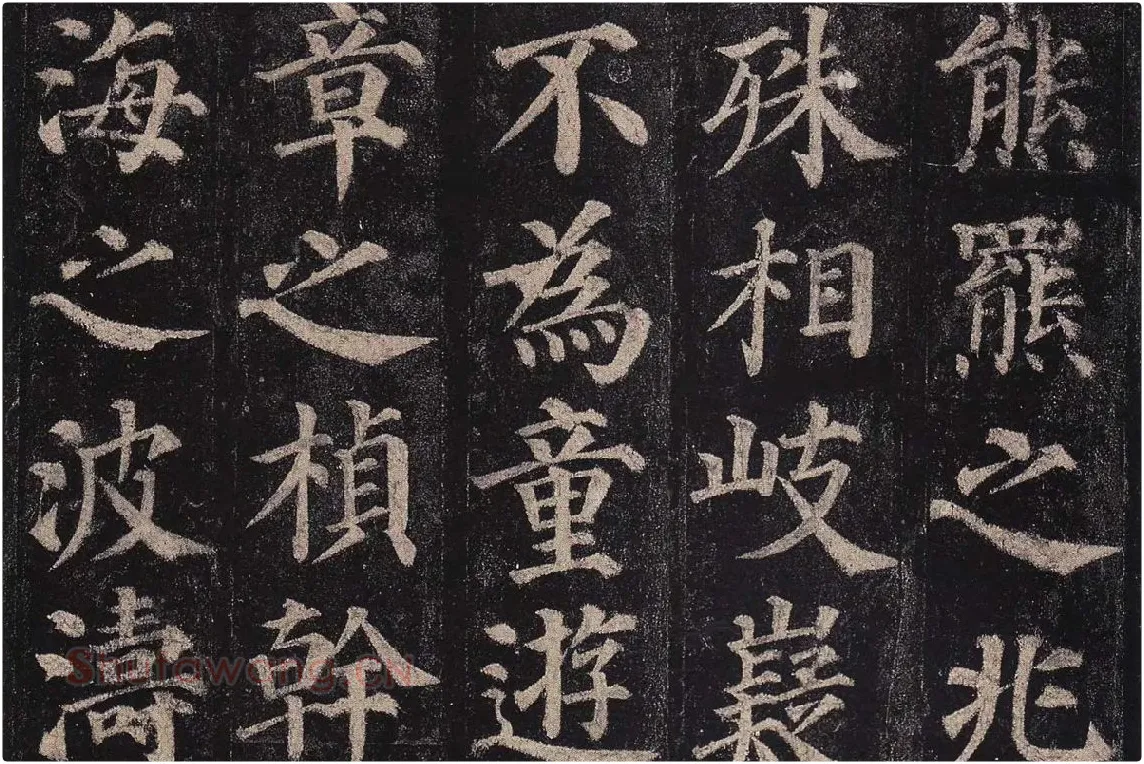 熊羆之兆
殊相岐嶷
不為童遊
章之楨幹
海之波濤
Shutawang.CN